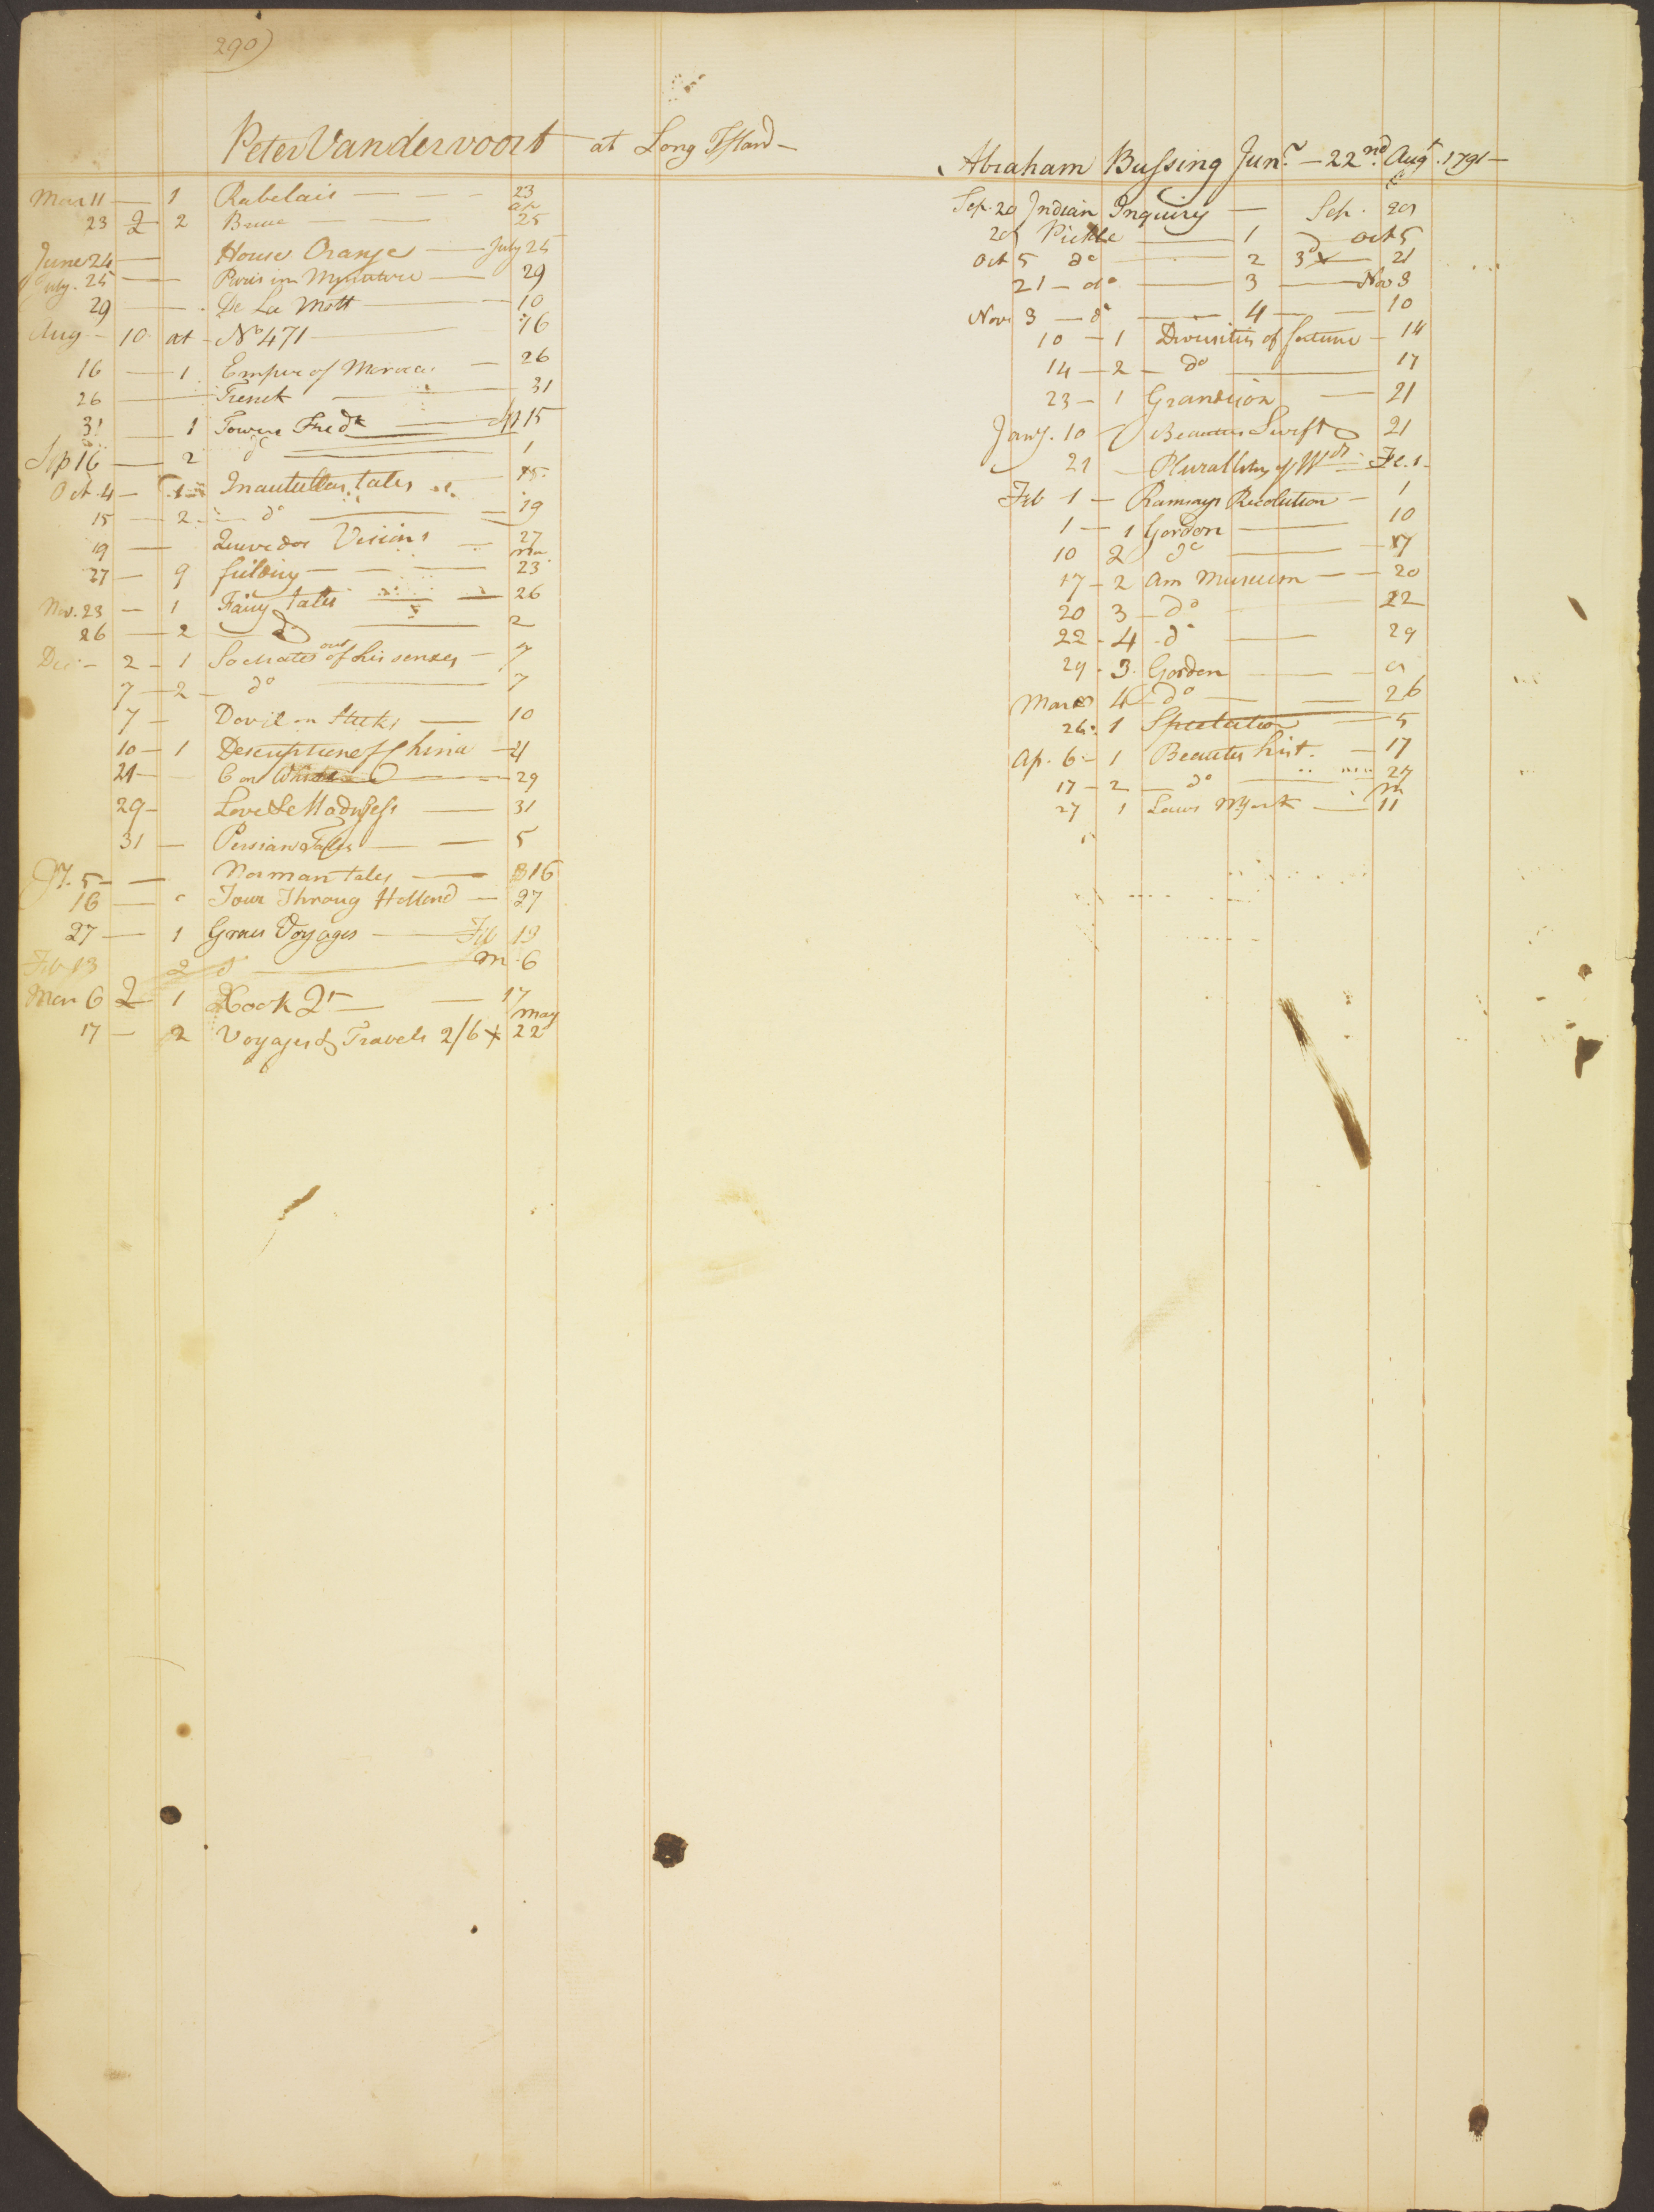 290)
Peter Vandervoort at Long Island —
Mar 11 — 1 Rabelais — — 23
23 2 2 Bruce — — ap 25
June 24 — House Orange — July 25
July. 25 — Paris in Myniature — 29
29 — De La Mott — 10
Aug — 10 at — No 471 — 16
16 — 1 Empire of Morocco — 26
26 — Trenck — 31
31 — 1 Towers Fredk — 15
Sep 16 — 2 do — 1
Oct 4 — 1 tales 15
15 — 2 — do — 19
19 — Quevedos Visions — 27
27 — 9 fielding — — — 23
Nov. 23 — 1 Fairy tales — 26
26 — 2 do — 2
Dec — 2 — 1 Socrates out of his senses — 7
7 — 2 — do — 7
7 — Devil on Sticks — 10
10 — 1 Description of China — 21
21 — on — 29
29 — Love & Madness — 31
31 — Persian Tales — — 5
5 — — Norman tales — 16
16 — Tour Throug Holland — 27
27 — 1 Voyages — Feb 13
Feb 13 2 do — m. 6
Mar 6 2 1 Cook — 17
17 — 2 Voyages & Travels 2/6 + may 22
Abraham Bussing Junr. — 22nd Augt. 1791 —
Sep. 20 Indian Inquiry — Sep. 29
29 Pickle — 1 — Oct 5
Oct 5 do — 2 3d x — 21
21 — do — 3 — Nov 3
Nov 3 — do — 4 — 10
10 — 1 Diversities of fortune — 14
14 — 2 — do — 17
23 — 1 Grandison — 21
Jany. 10 — Beauties Swift 21
21 — Plurallity of Wds — Fe. 1
Feb 1 — Ramseys Revolution — 1
1 — 1 Gordon — 10
10 2 do — 17
17 — 2 Am Museum — — 20
20 3 — do — 22
22 — 4 — do — 29
29 — 3. Gordon —
Mar 4 — do — 26
26. 1 Spectator — 5
Ap. 6 — 1 Beauties hist. — 17
17 — 2 — do — 27
27 1 Laws NYork — m 11